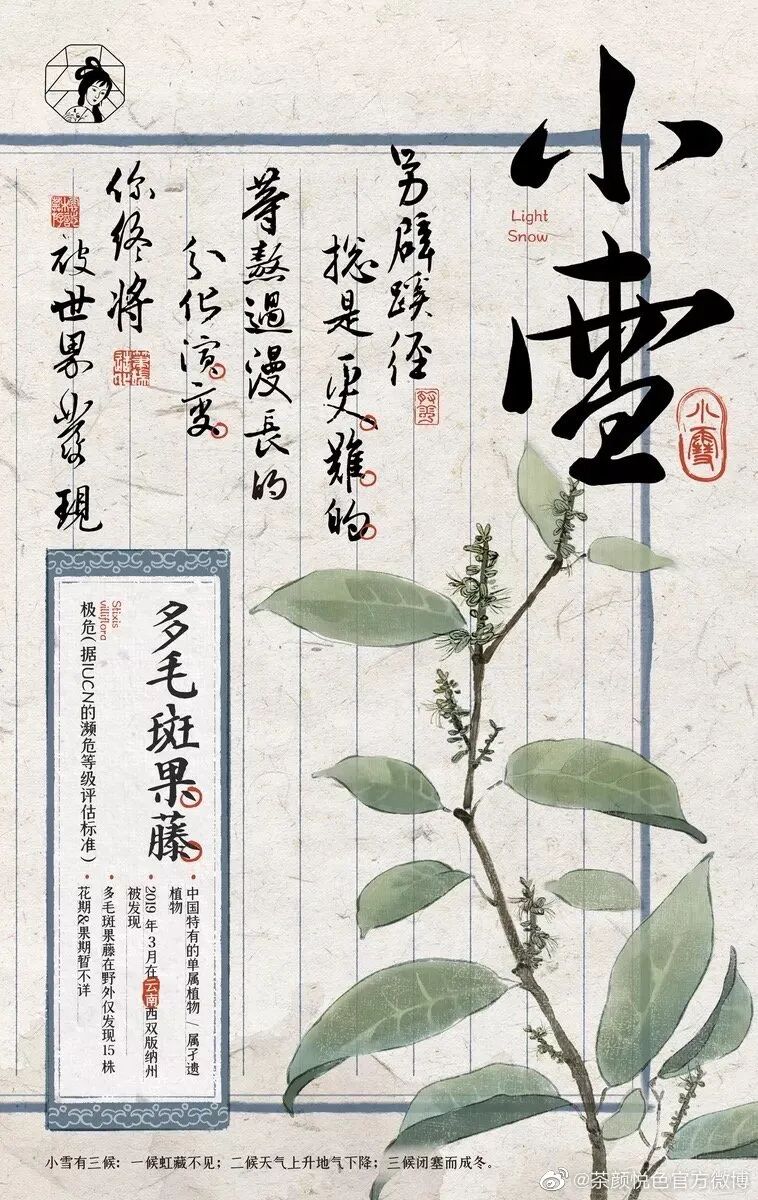 小雪
Light
Snow
小雪
另辟蹊径
總是更難的
等熬過漫長的
分化演变
你终将
被世界發現
多毛斑果藤
Stixis
villiflora
极危（据IUCN的濒危等级评估标准）
• 中国特有的单属植物 / 属孑遗
植物
• 2019 年 3月在云南西双版纳州
被发现
• 多毛斑果藤在野外仅发现 15 株
• 花期&果期暂不详
小雪有三候：一候虹藏不见；二候天气上升地气下降；三候闭塞而成冬。
@茶颜悦色官方微博